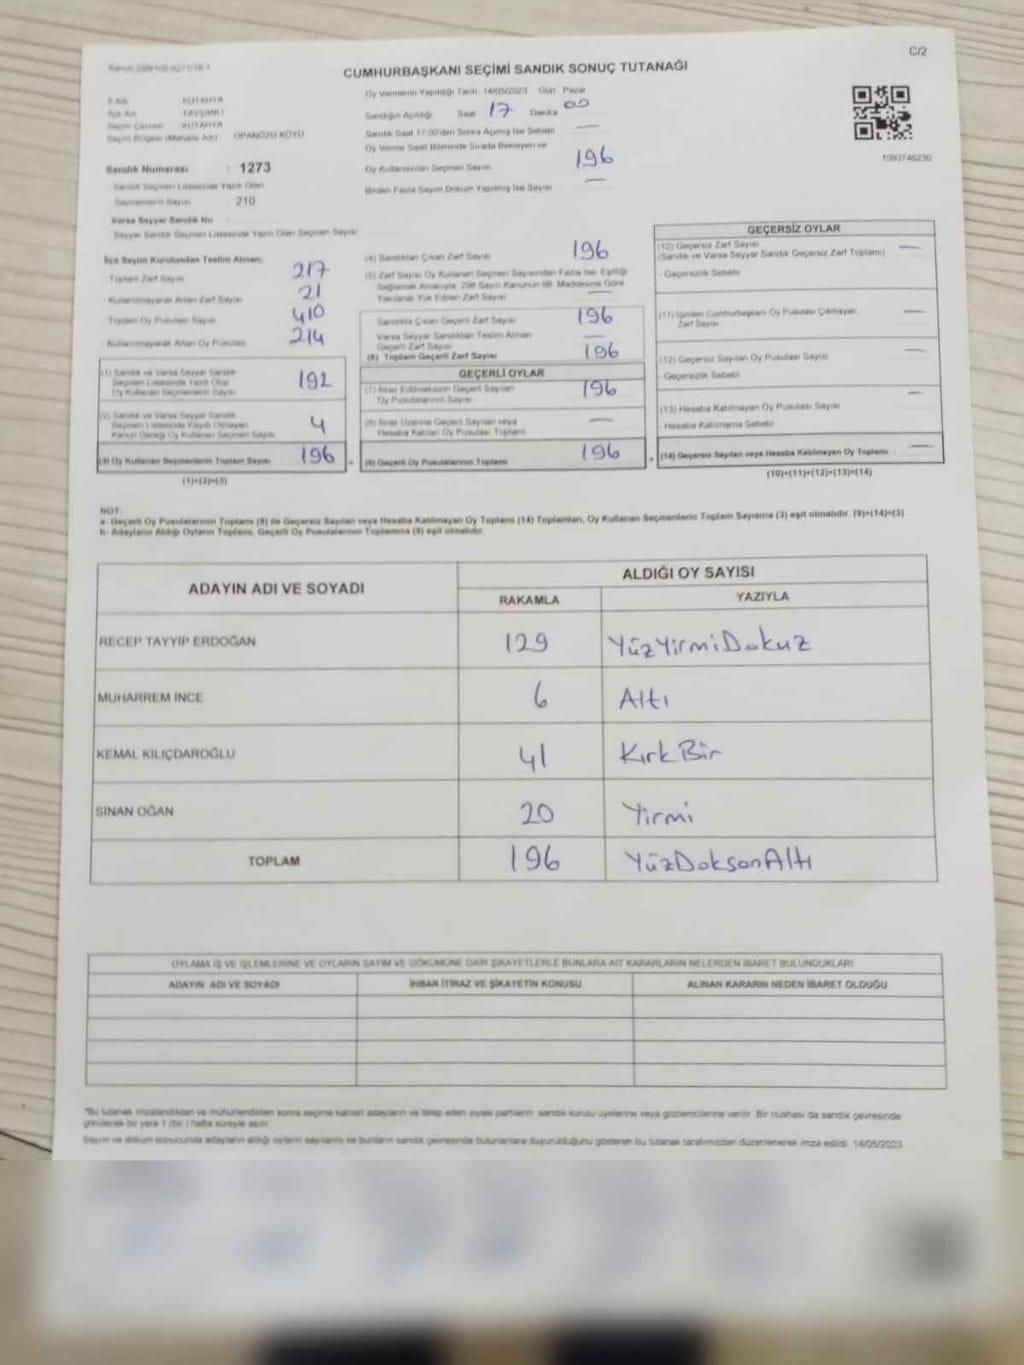 C/2
CUMHURBAŞKANI SEÇİMİ SANDIK SONUÇ TUTANAĞI
Oy Vermenin Yapıldığı Tarih 14/05/2023 Gün Pazar
Sandığın Açıldığı Saat 17 Dakika 00
Sandık Saat 17:00'den Sonra Açılmış İse Sebebi —
Oy Verme Saati Bitiminde Sırada Bekleyen ve
Oy Kullandırılan Seçmen Sayısı 196
Birden Fazla Sayım Döküm Yapılmış İse Sayısı —
İl Adı KÜTAHYA
İlçe Adı TAVŞANLI
Seçim Çevresi KÜTAHYA
Seçim Bölgesi (Mahalle Adı) OPANÖZÜ KÖYÜ
Sandık Numarası : 1273
Sandık Seçmen Listesinde Yazılı Olan
Seçmenlerin Sayısı : 210
Varsa Seyyar Sandık No
Seyyar Sandık Seçmen Listesinde Yazılı Olan Seçmen Sayısı
1093746230
İlçe Seçim Kurulundan Teslim Alınan;
- Toplam Zarf Sayısı 217
- Kullanılmayarak Artan Zarf Sayısı 21
- Toplam Oy Pusulası Sayısı 410
- Kullanılmayarak Artan Oy Pusulası 214
(1) Sandık ve Varsa Seyyar Sandık
Seçmen Listesinde Yazılı Olup
Oy Kullanan Seçmenlerin Sayısı 192
(2) Sandık ve Varsa Seyyar Sandık
Seçmen Listesinde Kayıtlı Olmayan
Kanun Gereği Oy Kullanan Seçmen Sayısı 4
(3) Oy Kullanan Seçmenlerin Toplam Sayısı 196
(1)+(2)=(3)
(4) Sandıktan Çıkan Zarf Sayısı 196
(5) Zarf Sayısı Oy Kullanan Seçmen Sayısından Fazla İse, Eşitliği
Sağlamak Amacıyla, 298 Sayılı Kanunun 98. Maddesine Göre
Yakılarak Yok Edilen Zarf Sayısı —
Sandıkta Çıkan Geçerli Zarf Sayısı 196
Varsa Seyyar Sandıktan Teslim Alınan
Geçerli Zarf Sayısı —
(6) Toplam Geçerli Zarf Sayısı 196
GEÇERLİ OYLAR
(7) İtiraz Edilmeksizin Geçerli Sayılan
Oy Pusulalarının Sayısı 196
(8) İtiraz Üzerine Geçerli Sayılan veya
Hesaba Katılan Oy Pusulası Toplamı —
(9) Geçerli Oy Pusulalarının Toplamı 196
GEÇERSİZ OYLAR
(10) Geçersiz Zarf Sayısı —
(Sandık ve Varsa Seyyar Sandık Geçersiz Zarf Toplamı)
- Geçersizlik Sebebi
(11) İçinden Cumhurbaşkanı Oy Pusulası Çıkmayan
Zarf Sayısı —
(12) Geçersiz Sayılan Oy Pusulası Sayısı —
- Geçersizlik Sebebi
(13) Hesaba Katılmayan Oy Pusulası Sayısı —
- Hesaba Katılmama Sebebi
(14) Geçersiz Sayılan veya Hesaba Katılmayan Oy Toplamı —
(10)+(11)+(12)+(13)=(14)
NOT:
a- Geçerli Oy Pusulalarının Toplamı (9) ile Geçersiz Sayılan veya Hesaba Katılmayan Oy Toplamı (14) Toplamları, Oy Kullanan Seçmenlerin Toplam Sayısına (3) eşit olmalıdır. (9)+(14)=(3)
b- Adayların Aldığı Oyların Toplamı, Geçerli Oy Pusulalarının Toplamına (9) eşit olmalıdır.
ADAYIN ADI VE SOYADI
ALDIĞI OY SAYISI
RAKAMLA YAZIYLA
RECEP TAYYİP ERDOĞAN 129 YüzYirmiDokuz
MUHARREM İNCE 6 Altı
KEMAL KILIÇDAROĞLU 41 KırkBir
SİNAN OĞAN 20 Yirmi
TOPLAM 196 YüzDoksanAltı
OYLAMA İŞ VE İŞLEMLERİNE VE OYLARIN SAYIM VE DÖKÜMÜNE DAİR ŞİKAYETLERLE BUNLARA AİT KARARLARIN NELERDEN İBARET BULUNDUKLARI
ADAYIN ADI VE SOYADI İHBAR İTİRAZ VE ŞİKAYETİN KONUSU ALINAN KARARIN NEDEN İBARET OLDUĞU
"Bu tutanak imzalandıktan ve mühürlendikten sonra seçime katılan adayların ve talep eden siyasi partilerin sandık kurulu üyelerine veya gözlemcilerine verilir. Bir nüshası da sandık çevresinde
görülecek bir yere 1 (bir ) hafta süreyle asılır.
Sayım ve döküm sonucunda adayların aldığı oyların sayılarını ve bunların sandık çevresinde bulunanlara duyurulduğunu gösteren bu tutanak tarafımızdan düzenlenerek imza edildi. 14/05/2023